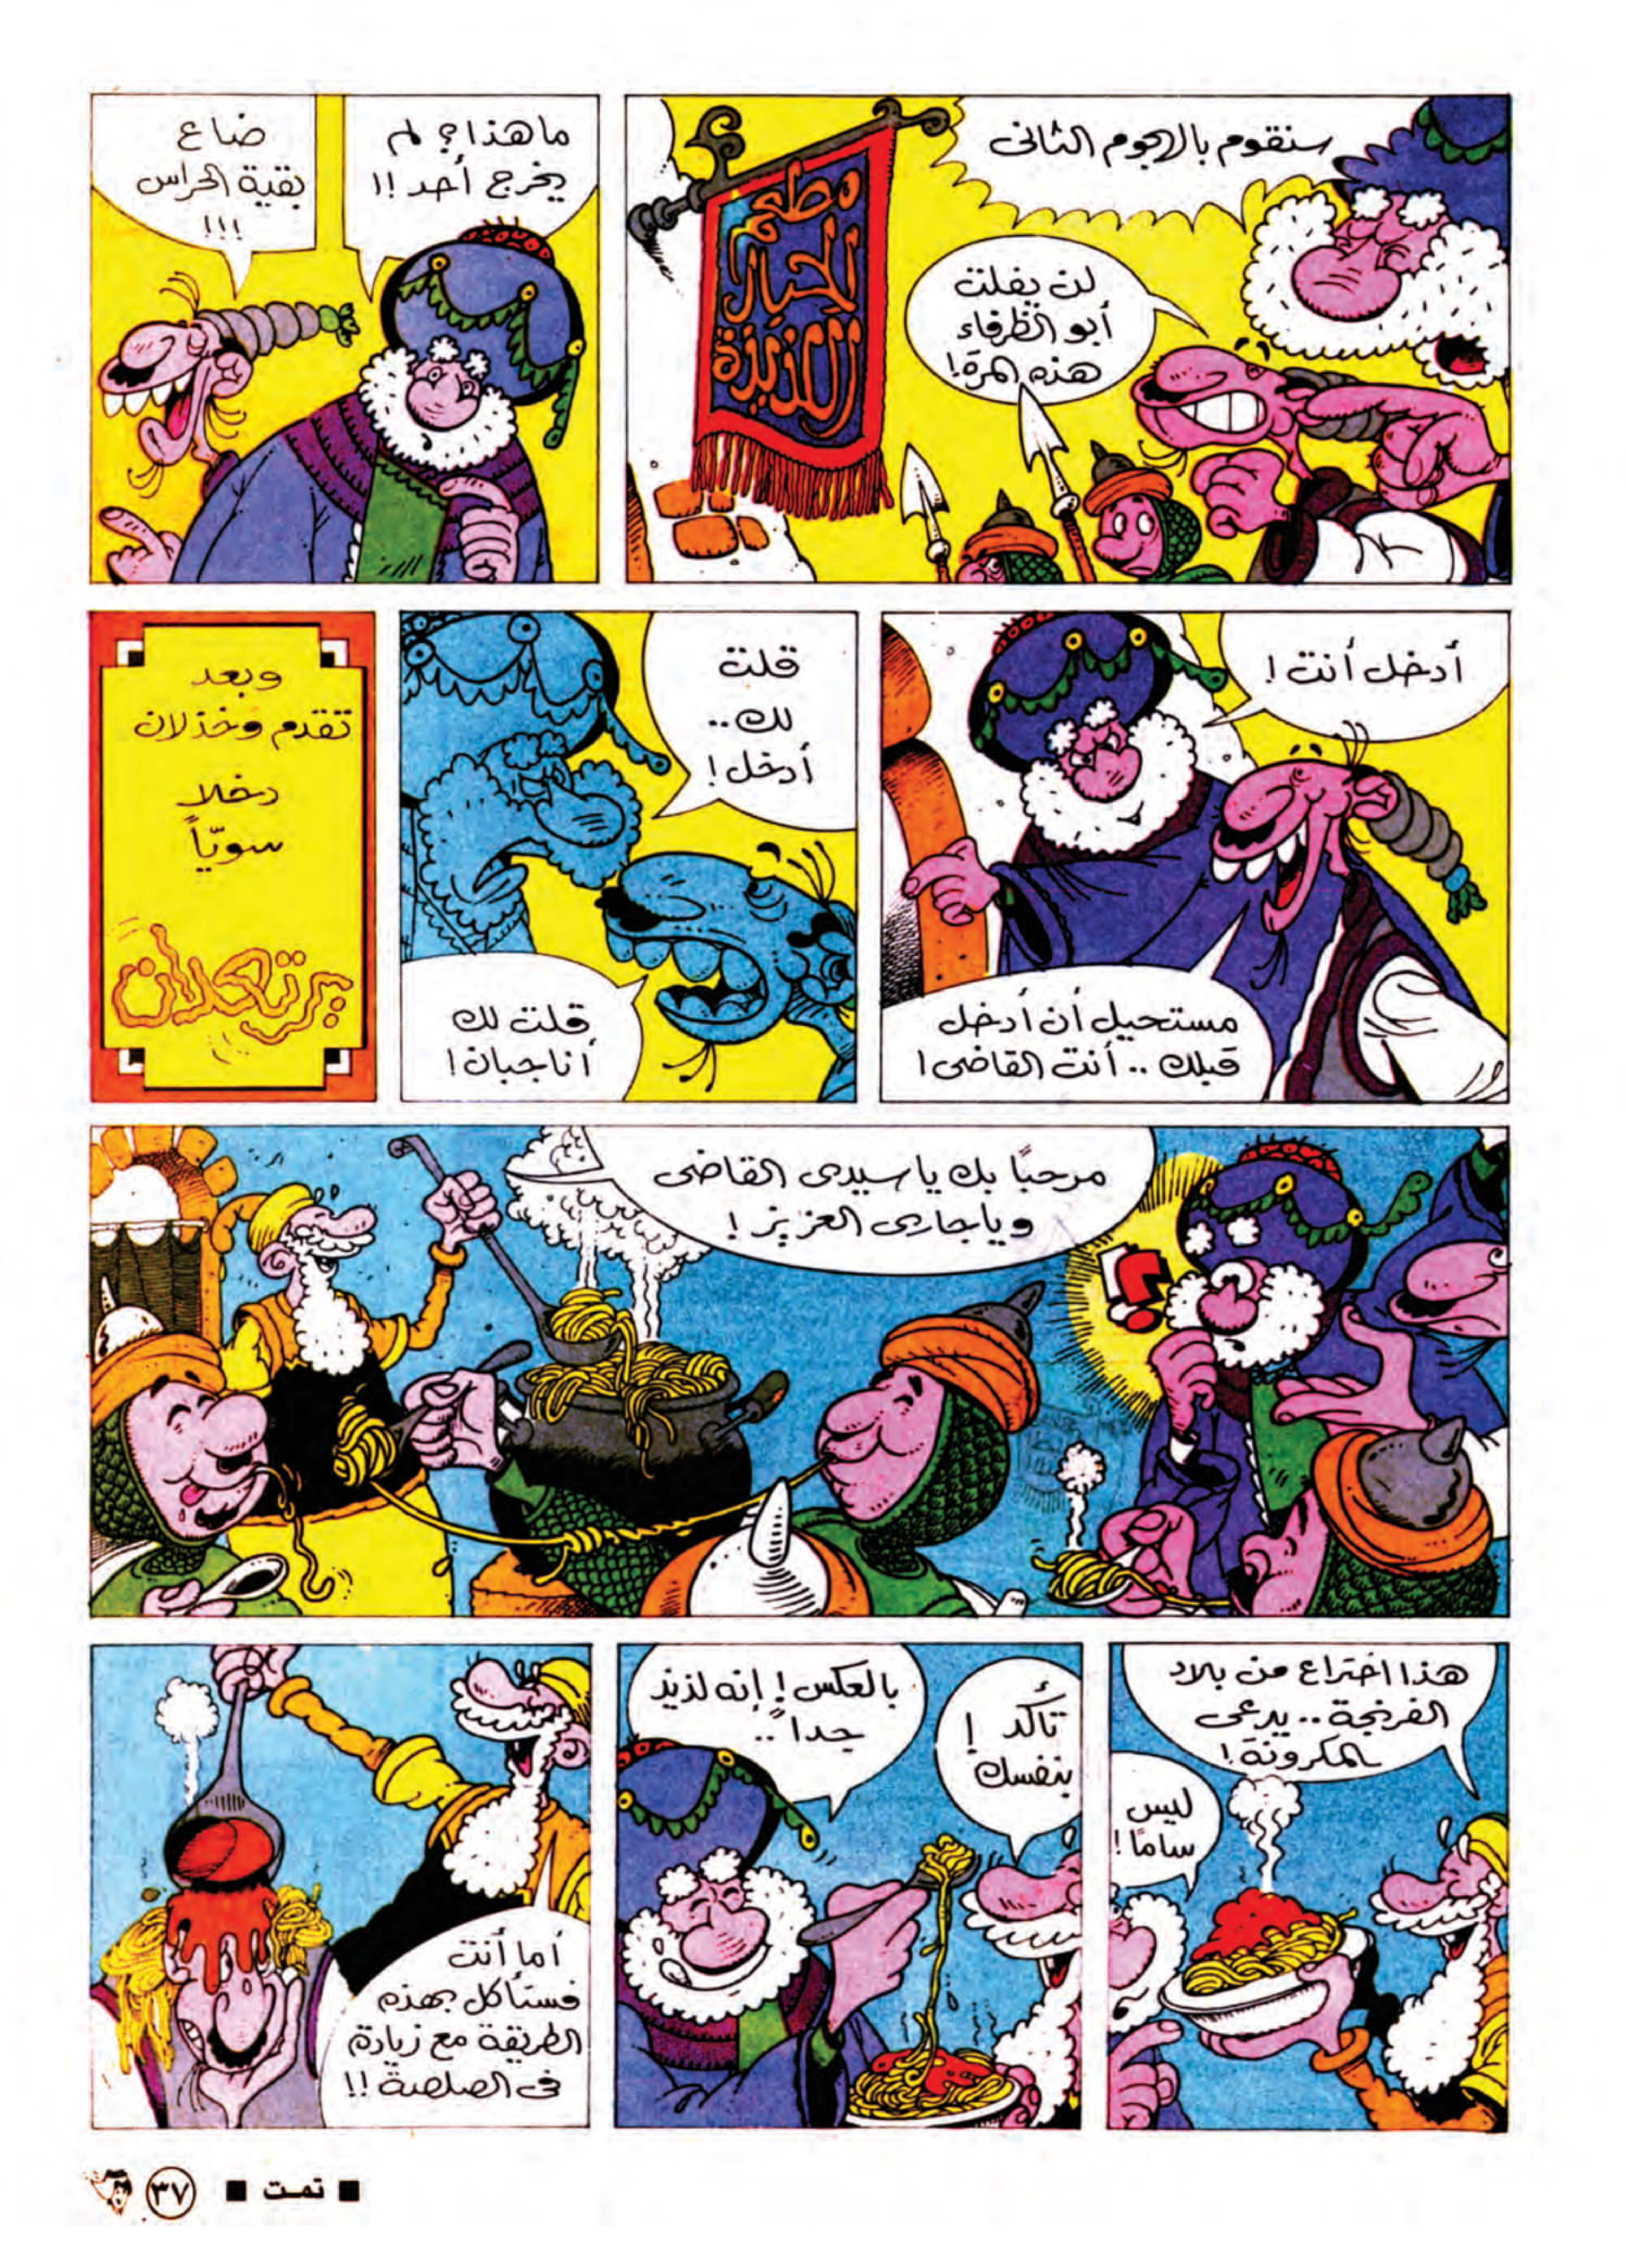 سنقوم بالهجوم الثانى
لن يفلت
أبو الظرفاء
هذه المرة!
مطعم
الحبايب
اللذيذة
ما هذا؟ لم
يخرج أحد!!
ضاع
بقية الحراس
!!!
أدخل أنت!
مستحيل أن أدخل
قبلك.. أنت القاضى!
قلت
لك..
أدخل!
قلت لك
أنا جبان!
وبعد
تقدم وخذلان
دخلا
سويّاً
يرتعدان
مرحبًا بك يا سيدى القاضى
ويا جارى العزيز!
هذا اختراع من بلاد
الفرنجة.. يدعى
بالمكرونة!
ليس
سامًا!
تأكد
بنفسك!
بالعكس! إنه لذيذ
جداً..
أما أنت
فستأكل بهذه
الطريقة مع زيادة
فى الصلصة!!
■ تمت ■ ٣٧